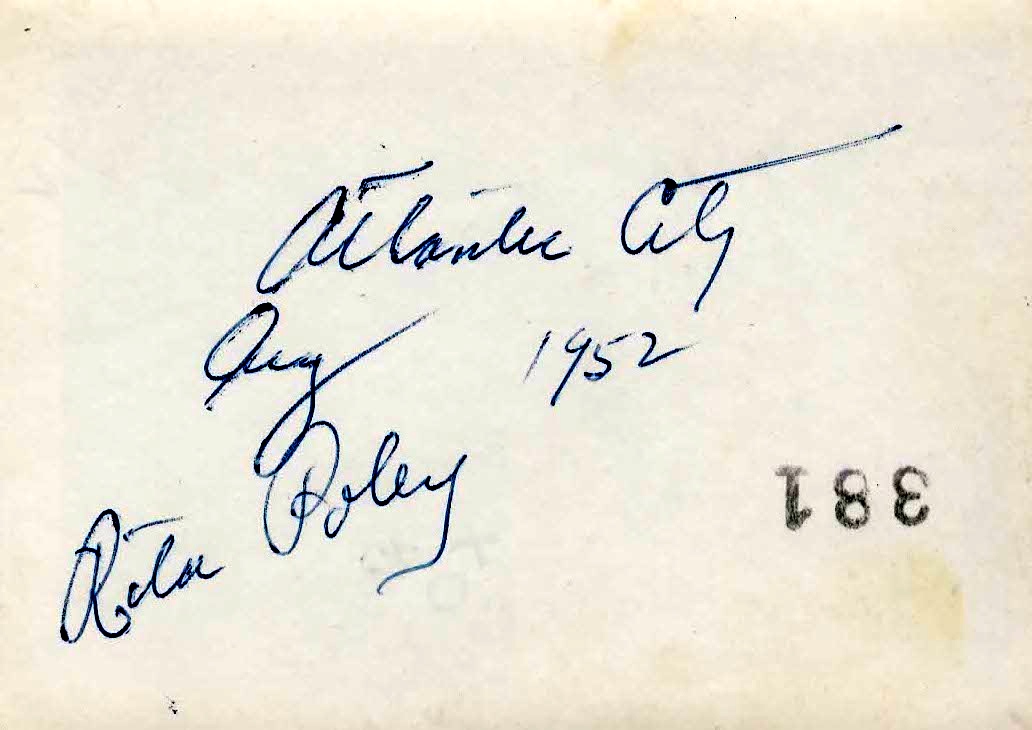 Atlantic City
Aug 1952
Rita Poley
381